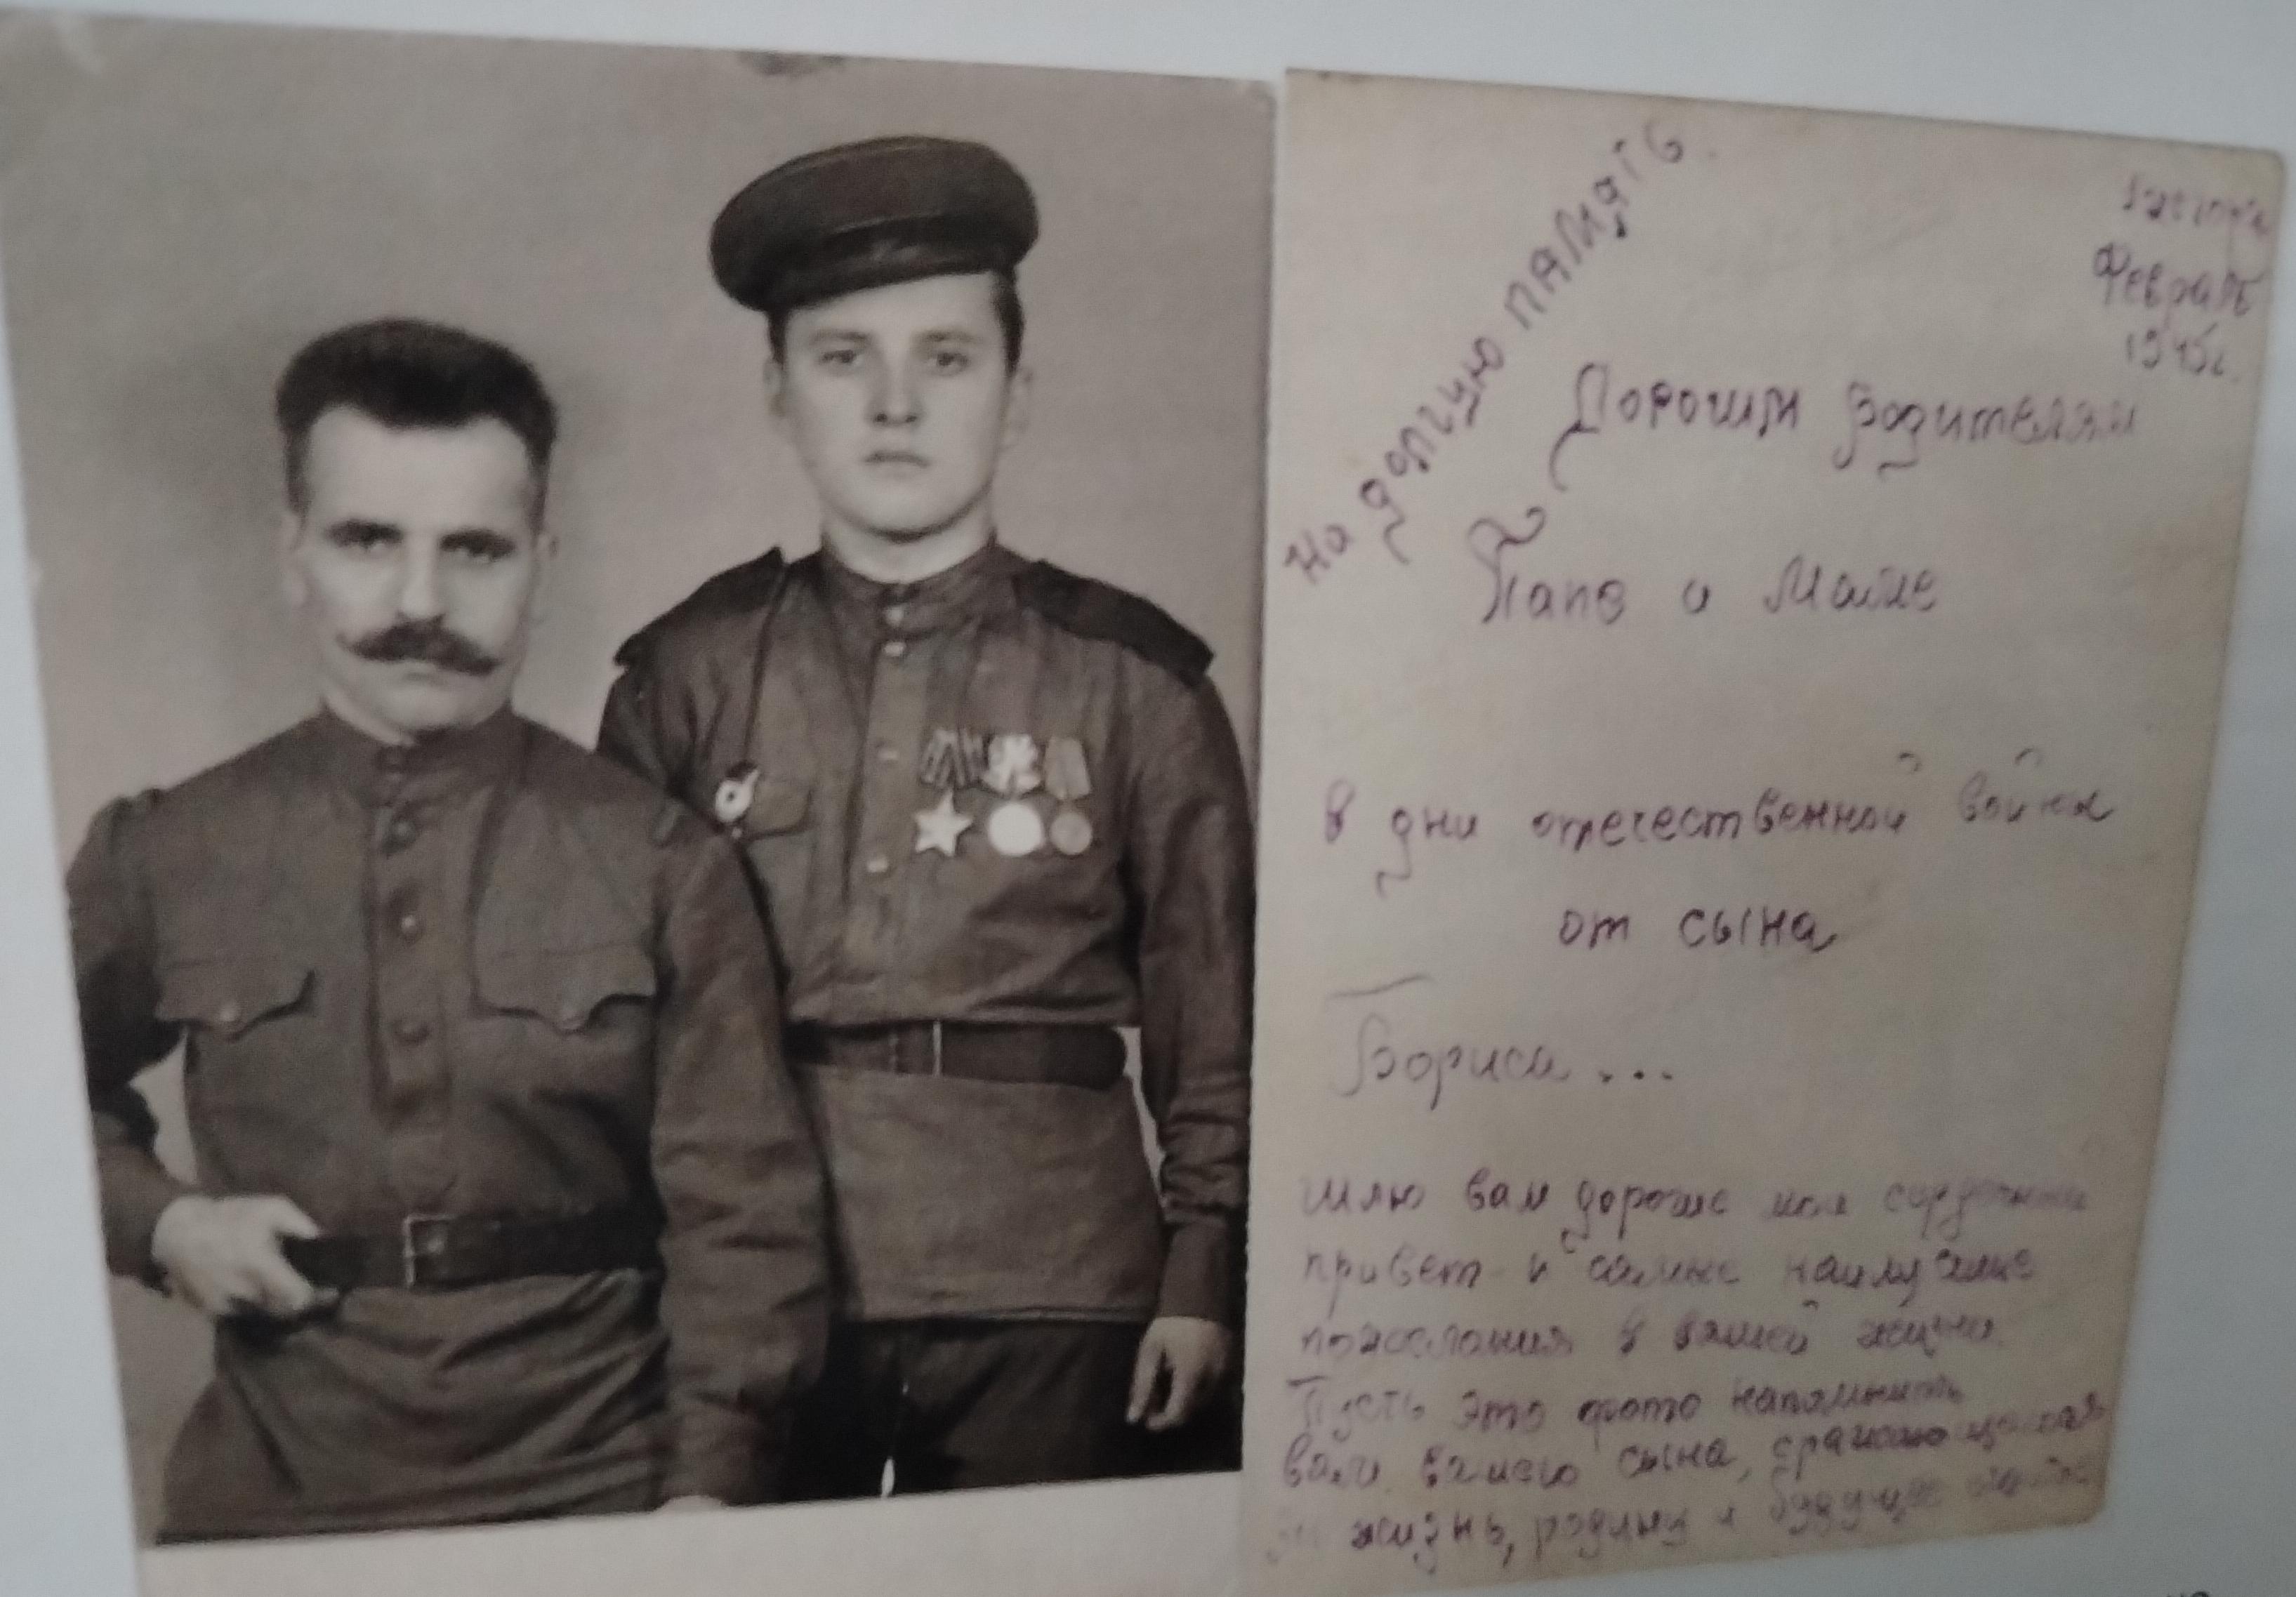 На долгую память.
Февраль
1945г.
Дорогим Родителям
Папе и Маме
В дни отечественной войны
от сына
Бориса...
Шлю вам дорогие мои сердечный
привет и самые наилучшие
пожелания в вашей жизни.
Пусть это фото напомнить
вам вашего сына,
жизнь, родину и будущее